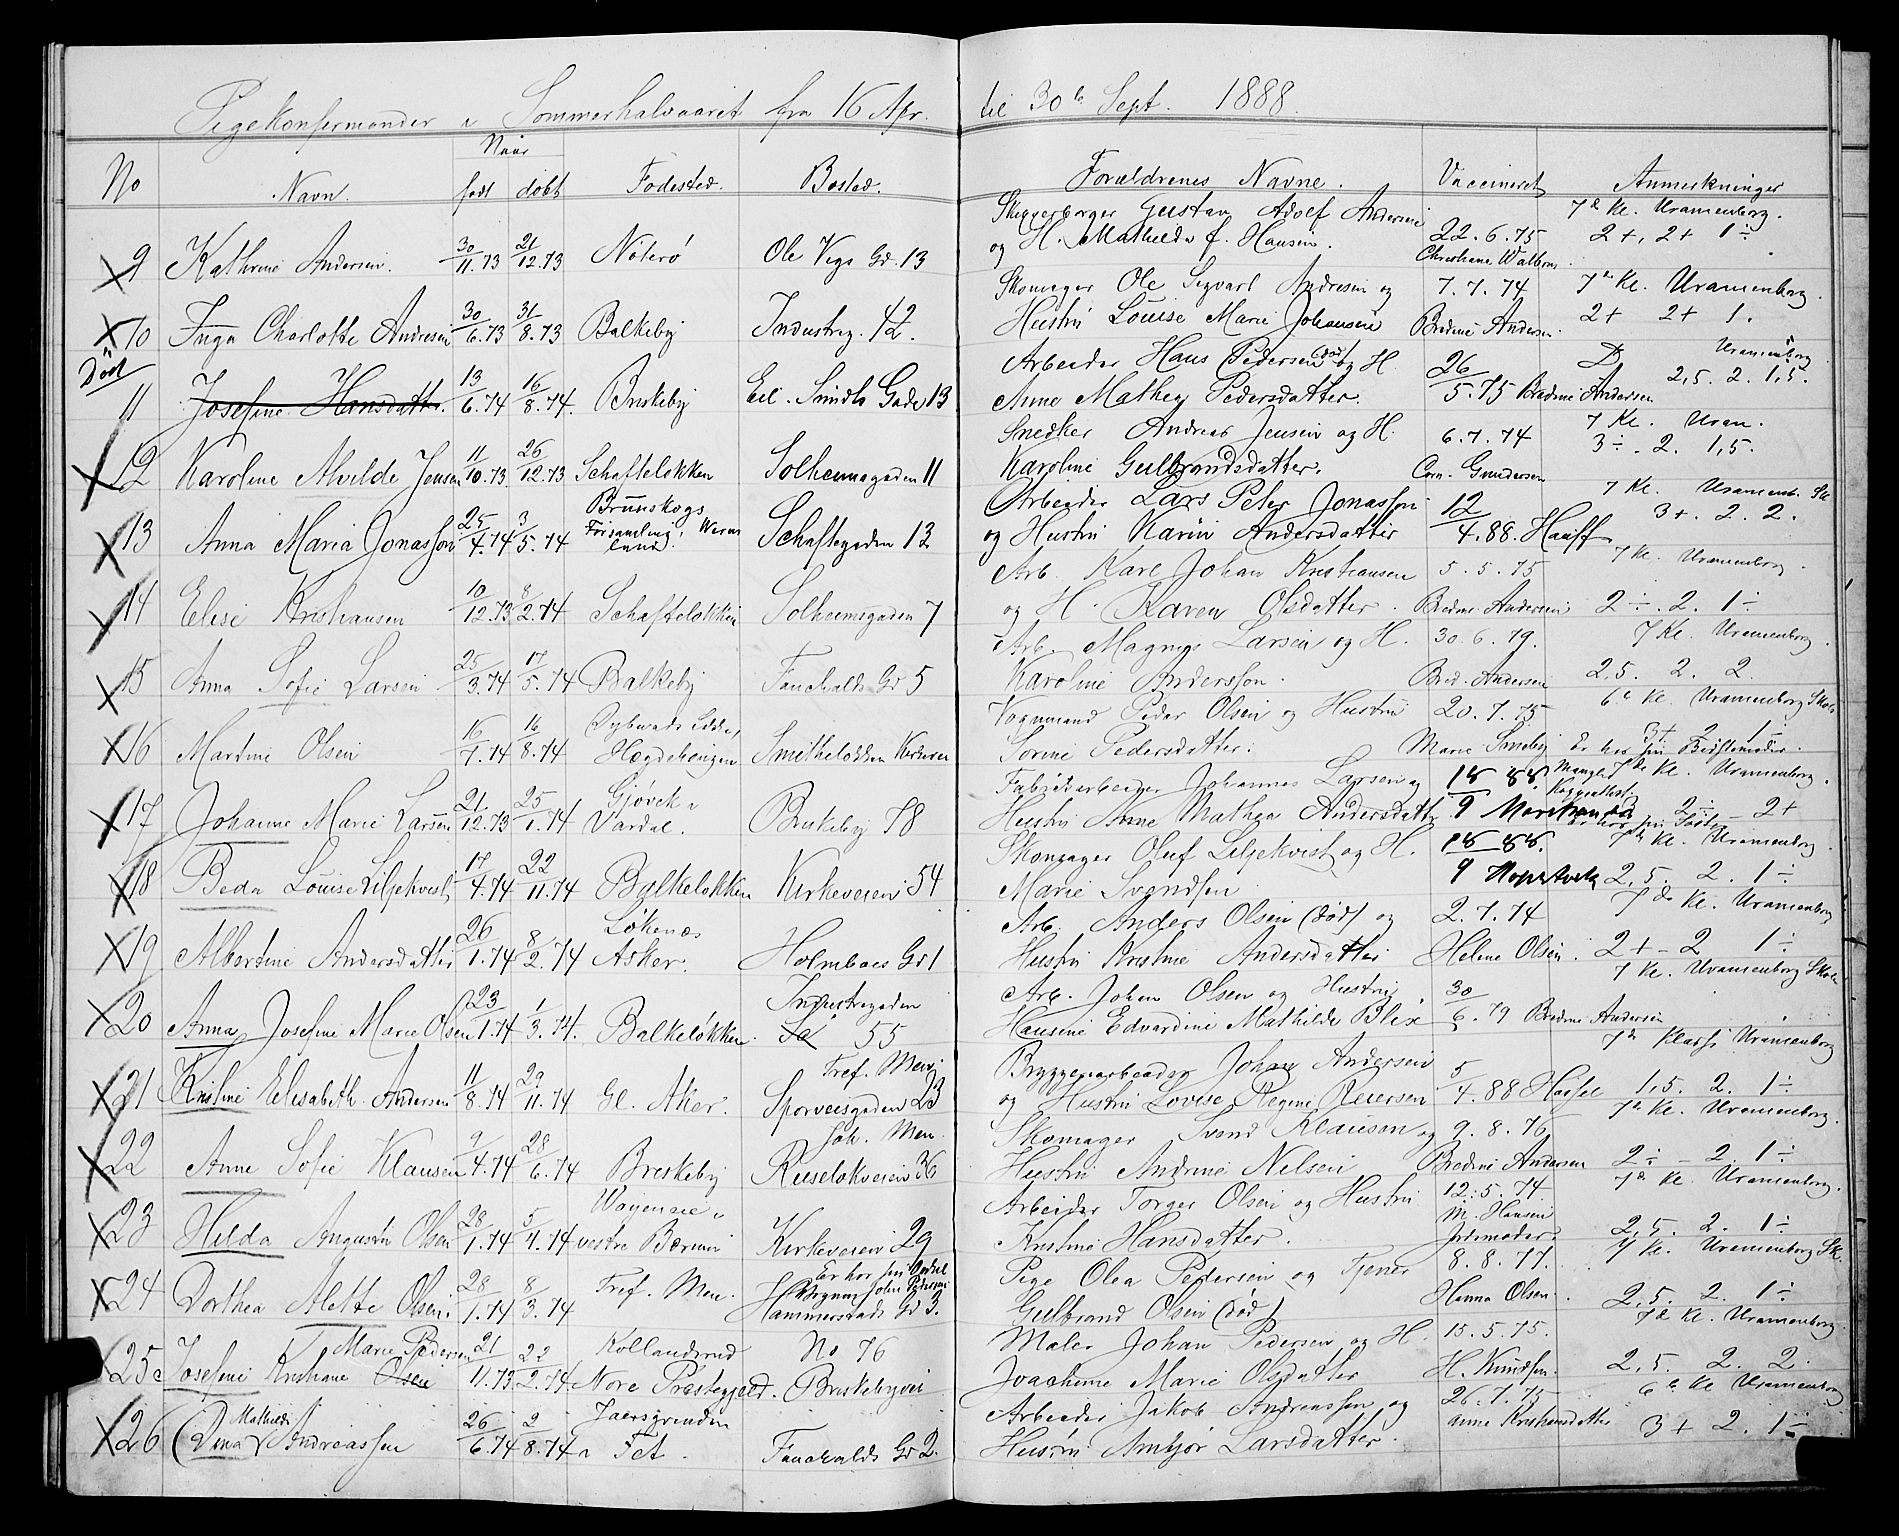 Pigekonfermander i Sommerhalvaaret fra 16 Apr. til 30 Sept. 1888.
Naar
No Navn. født døbt Fødested. Bosted. Forældrenes Navne. Vaccineret Anmerkninger
Gustav Adolf Andersen 7de Kl. Uranienborg.
9 Kathrine Andersen. 30/11.73 21/12.73 Nøterø Ole Vigs Gd. 13 og H. Mathilde f. Hansen. 22.6.75 2+, 2+ 1÷
Skomager Ole Sigvart Andresen og 7.7.74 7de Kl. Uranienborg.
10 Inga Charlotte Andresen 30/6.73 31/8.73 Balkeby Industrig. 42. Hustru Louise Marie Johansen Bredine Andersen. 2+ 2+ 1.
Død Arbeider Hans Pedersen (død) og H. 26 Uranienborg
11 Josefine Hansdatter. 13/6.74 16/8.74. Briskeby Eil. Sundts Gade 13 Anne Mathea Pedersdatter. 5.75 Bredine Andersen 2,5. 2. 1,5.
Snedker Andreas Jensen og H. 6.7.74 7 Kl. Uran.
12 Karoline Alvilde Jensen 11/10.73 26/12.73 Schafteløkken Solheimsgaden 11 Karoline Gulbrandsdatter. Corn. Gundersen 3÷. 2. 1,5.
Brunskogs Arbeider Lars Peter Jonasson 12 7 Kl. Uranienb. Sk.
13 Anna Maria Jonasson 25/4.74 3/5.74 Forsamling, Werm land. Schaftegaden 12 og Hustru Karin Andersdatter 4.88. Hauff 3+. 2. 2.
Arb. Karl Johan Kristiansen 5.5.75 7 Kl. Uranienborg.
14 Elise Kristiansen 10/12.73 8/2.74 Schafteløkken Solheimsgaden 7 og H. Karen Olsdatter. Bredine Andersen 2÷. 2. 1÷
Arb. Magnus Larsen og H. 30.6.79. 7 Kl. Uranienborg.
15 Anna Sofie Larsen 25/3.74 17/5.74 Balkeby Fauchalds Gd 5 Karoline Andersson. Bred. Andersen 2,5. 2. 2.
Vognmand Peder Olsen og Hustru 20.7.75 6te Kl. Uranienborg Skole
16 Martine Olsen 16/7.74 16/8.74 Hægdehougen Smitheløkken Sorine Pedersdatter. Marie Smeby 3+ 2 1÷ Er hos sin Bedstemoder.
Gjøvik i Fabrikarbeider Johannes Larsen og 18 88. Mangler Koppeattest 7de Kl. Uranienborg.
17 Johanne Marie Larsen 21/12.73 25/1.74 Vardal. Briskeby 78 Hustru Anne Mathea Andersdatter 9 2÷ - 2+
Skomager Oluf Liljekvist og H. 18 88. 7de Kl. Uranienborg.
18 Beda Louise Liljekvist 17/4.74 22/11.74 Balkeløkken Kirkeveien 54 Marie Svendsen 9 2,5. 2. 1÷
Løkenæs Arb. Anders Olsen (død) og 2.7.74 7de Kl. Uranienborg
19 Albertine Andersdatter 26/1.74 8/2.74 Asker. Holmboes Gd 1 Hustru Kristine Andersdatter Helene Olsen. 2+ - 2 1÷
Industrigaden Arb. Johan Olsen og Hustru 30 7 Kl. Uranienborg Skole
20 Anna Josefine Marie Olsen 23/1.74 1/3.74. Balkeløkken. 55 Hansine Edvardine Mathilde Blix 6.79 Bredine Andersen
Tref. Men. Bryggeriarbeider Johan Andersen 5 7de Klasse Uranienborg
21 Kristine Elisabeth Andersen 11/8.74 29/11.74 Gl. Aker. Sporveisgaden 23 og Hustru Lovise Regine Reiersen 4.88 1,5. 2. 1÷
Joh. Men. Skomager Svend Klausen og 9.8.76 7de Kl. Uranienborg.
22 Anne Sofie Klausen 9/4.74 28/6.74 Briskeby Ruseløkveien 36 Hustru Andrine Nilsen Bredine Andersen 2÷ - 2. 1÷
Arbeider Torger Olsen og Hustru 12.5.74 7de Kl. Uranienborg.
23 Hilda Augusta Olsen 28/1.74 5/4.74 vestre Bærum Kirkeveien 29 Kristine Hansdatter. M. Hansen Jordmoder. 2,5. 2. 1÷
Er hos sin Onkel Pige Olea Pedersen og Tjener 8.8.77. 7 Kl. Uranienborg Sk.
24 Dorthea Alette Olsen 28/1.74 8/3.74 Tref. Men. Hammerstads Gd 3. Gulbrand Olsen (død) Hanna Olsen. 2,5. 2. 1÷
Marie Pedersen Kollandsrud No 76 Maler Johan Pedersen og H. 15.5.75. 7de Kl. Uranienborg.
25 Josefine Kristiane Olsen 21/11.73 22/2.74. Nore Præstegjeld. Briskebyvei Joachime Marie Olsdatter H. Knudsen. 2,5. 2. 2.
Mathilde Arbeider Jakob Andreassen og 26.7.75 6te Kl Uranienborg
26 (Dina Andreassen 26/6.74 2/8.74 i Fet. Fauchalds Gd 2. Hustru Larsdatter. Anne Kristiansdatter 3+ 2. 1÷